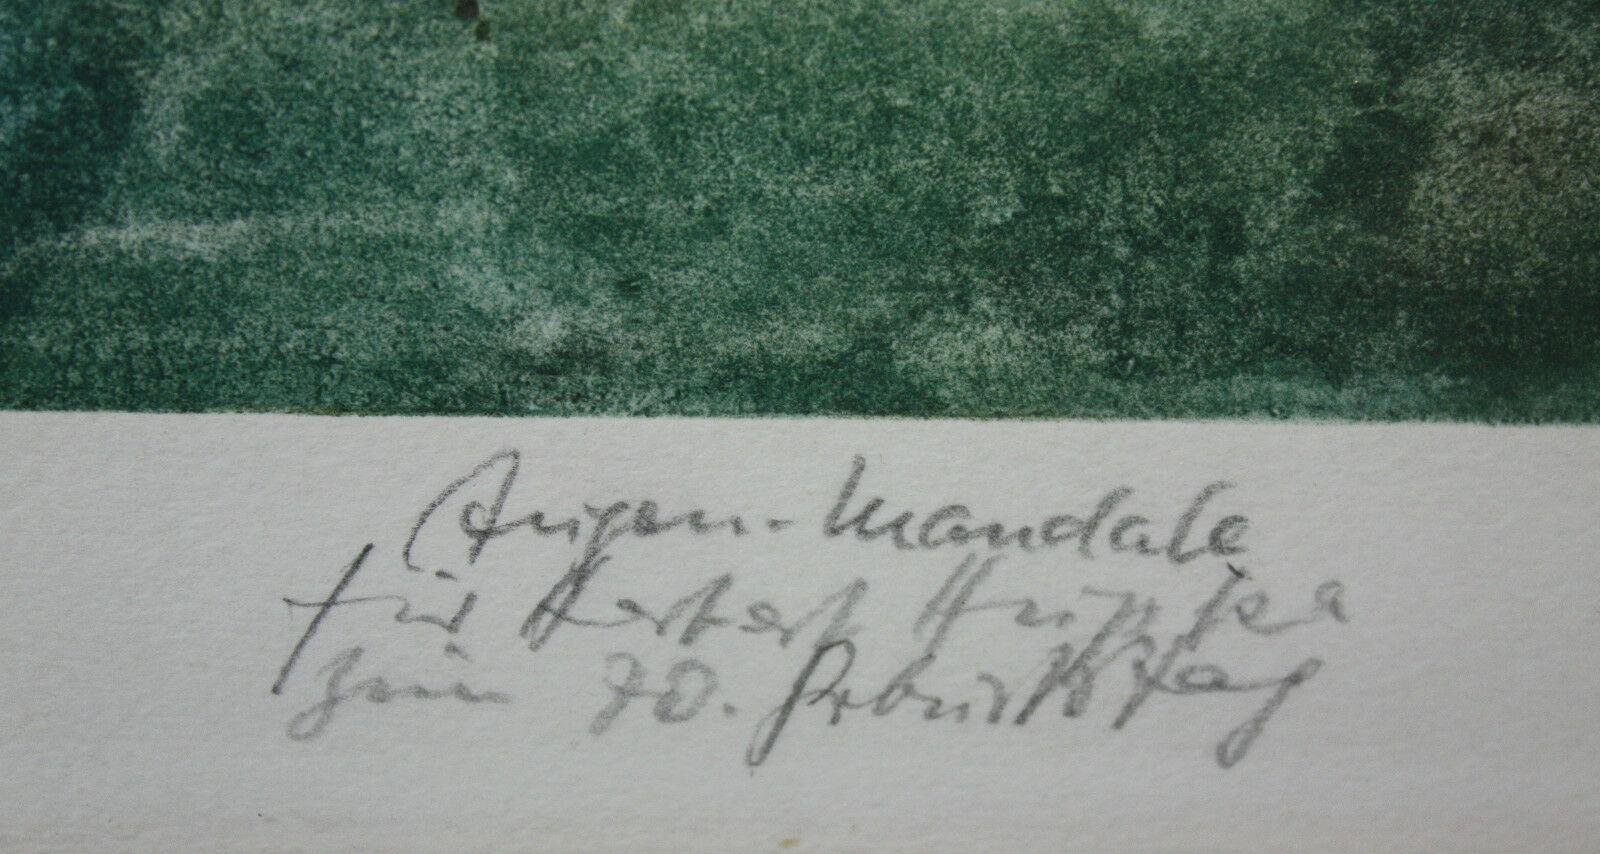 Augen-Mandala
für Herbert
zum 70. Geburtstag